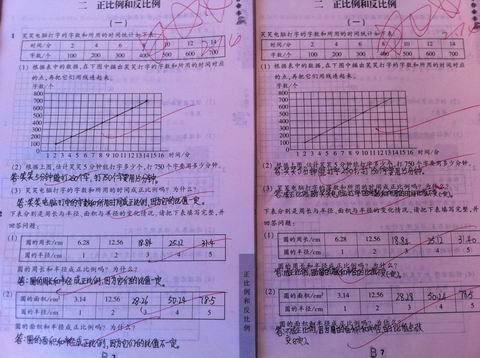 二 正比例和反比例
(一)
1 笑笑电脑打字的字数和所用的时间统计如下表。
时间/分 2 4 6 8 10 12 14
字数/个 100 200 300 400 500 600 700
(1) 根据表中的数据,在下图中描出笑笑打字的字数和所用的时间对应
的点,再把它们用线连起来。
字数/个
800
700
600
500
400
300
200
100
0
1 2 3 4 5 6 7 8 9 10 11 12 13 14 15 16 时间/分
(2) 根据上图,估计笑笑5分钟打字多少个,打750个字要用多少分钟。
答:笑笑5分钟能打250个字,打750个字要用15分钟。
(3) 笑笑电脑打字的字数和所用的时间成正比例吗?为什么?
下表分别是圆周长与半径、面积与半径的变化情况,请把下表填写完整,并
回答问题:
(1)
圆的周长/cm 6.28 12.56 18.84 25.12 31.4
圆的半径/cm 1 2 3 4 5
圆的周长和半径成正比例吗?为什么?
答:圆的周长和半径成正比例,因为它们的比值一定。
(2)
圆的面积/cm² 3.14 12.56 28.26 50.24 78.5
圆的半径/cm 1 2 3 4 5
圆的面积和半径成正比例吗?为什么?
答:圆的面积和半径不成正比例,因为它们的比值不一定。
正比例和反比例
B 7
二 正比例和反比例
(一)
笑笑电脑打字的字数和所用的时间统计如下表。
时间/分 2 4 6 8 10 12 14
字数/个 100 200 300 400 500 600 700
(1) 根据表中的数据,在下图中描出笑笑打字的字数和所用的时间对应
的点,再把它们用线连起来。
字数/个
800
700
600
500
400
300
200
100
0
1 2 3 4 5 6 7 8 9 10 11 12 13 14 15 16 时间/分
(2) 根据上图,估计笑笑5分钟打字多少个,打750个字要用多少分钟。
(3) 笑笑电脑打字的字数和所用的时间成正比例吗?为什么?
下表分别是圆周长与半径、面积与半径的变化情况,请把下表填写完整,并
回答问题:
(1)
圆的周长/cm 6.28 12.56 18.84 25.12 31.40
圆的半径/cm 1 2 3 4 5
圆的周长和半径成正比例吗?为什么?
(2)
圆的面积/cm² 3.14 12.56 50.24 78.5
圆的半径/cm 1 2 3 4 5
圆的面积和半径成正比例吗?为什么?
B 7